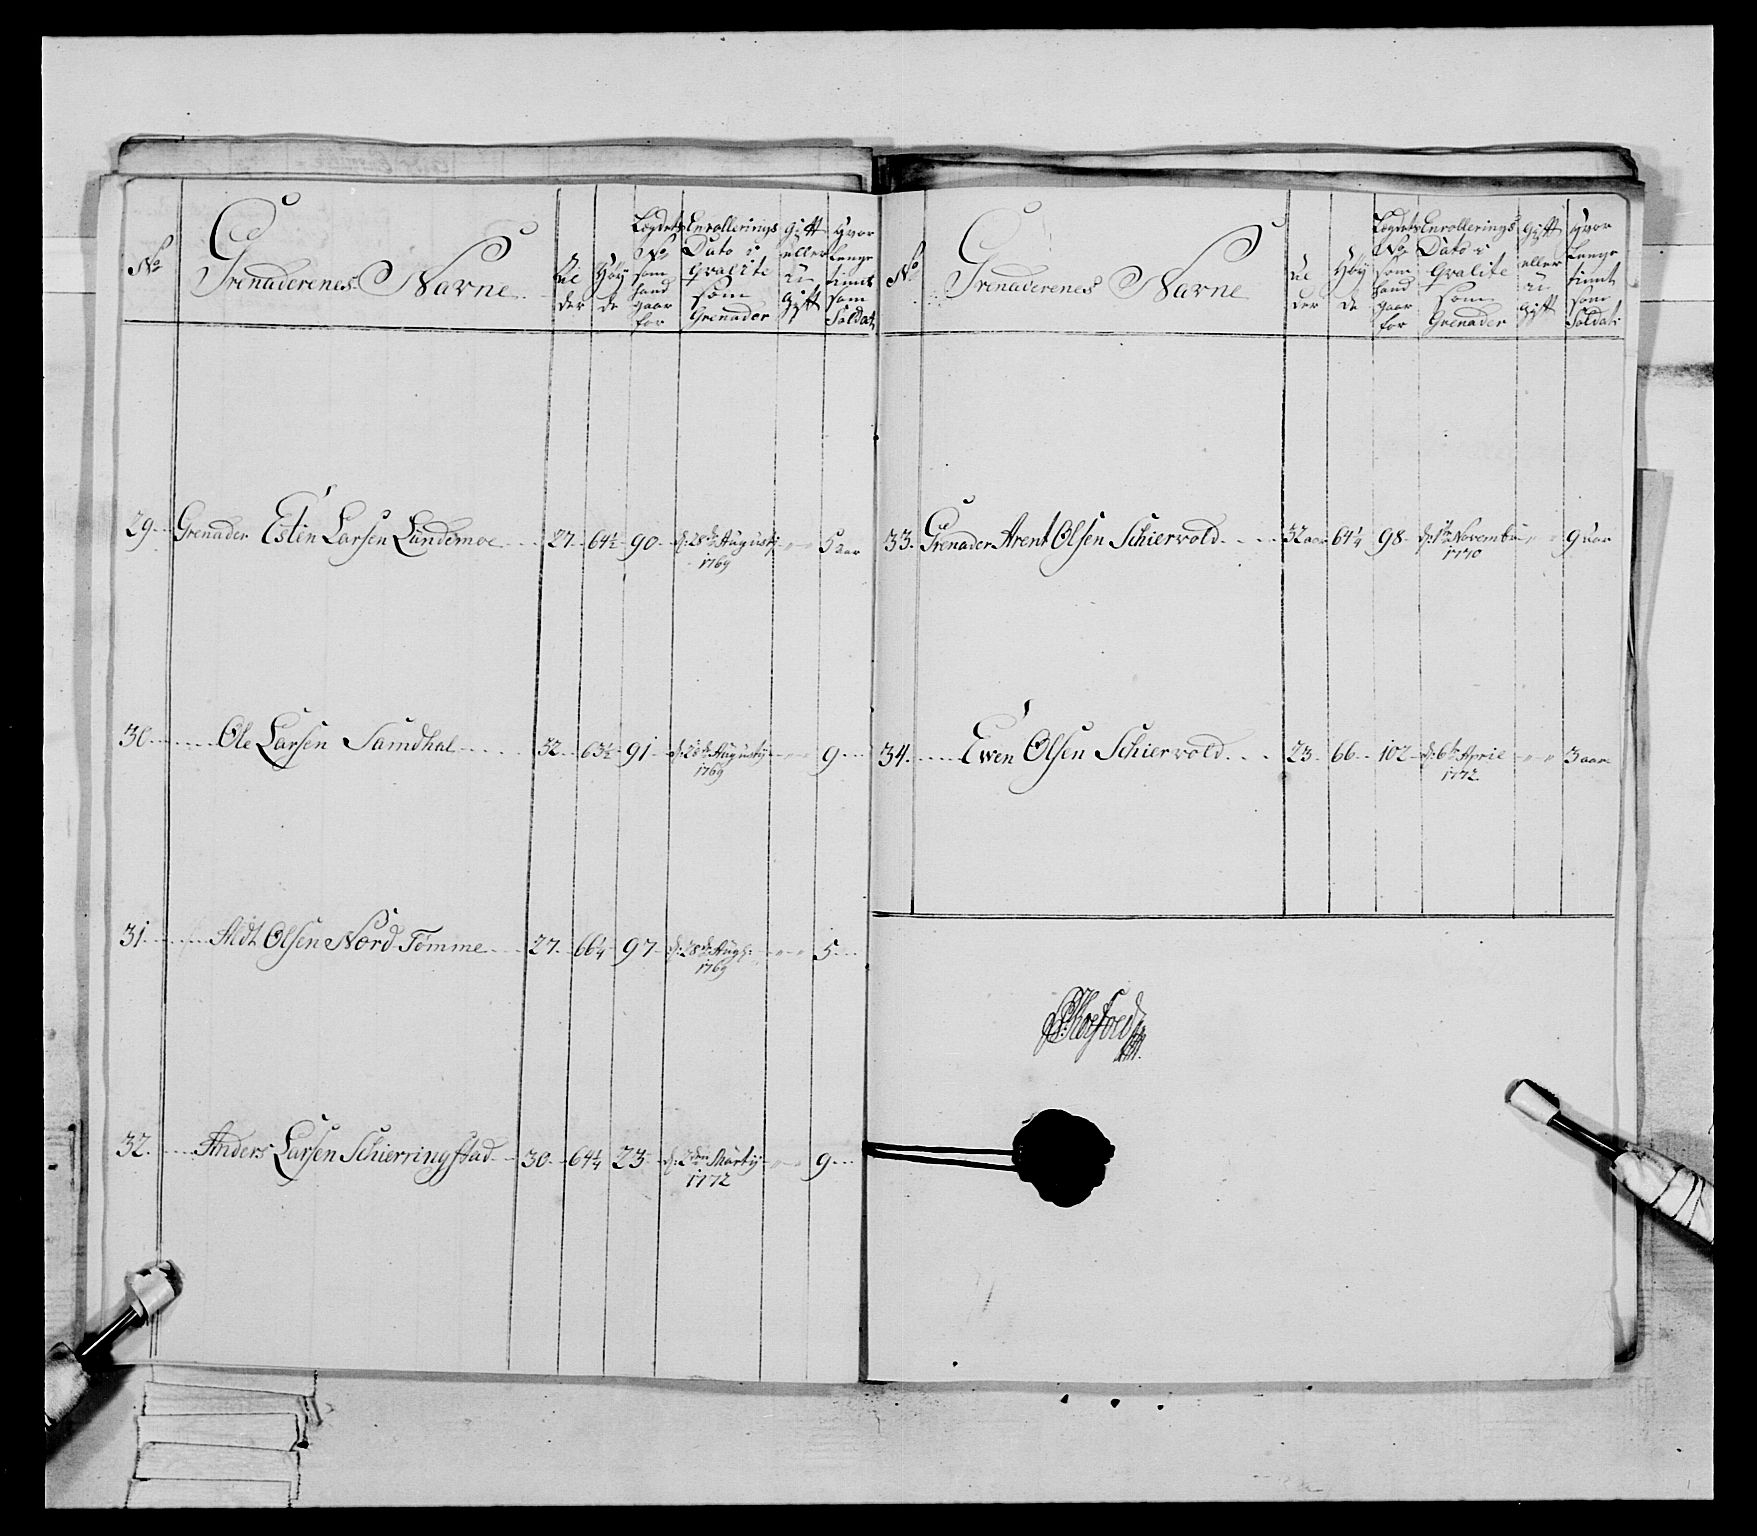 No
Grenaderenes Navne
Al
der
Høy
de
Legdets
No
som
hand
gaar
for
Enrollerings
Dato i
Qvalite
som
Grenader
Gift
eller
U
gift
Hvor
Lenge
tient
som
Soldat
29. Grenader Esten Larsen Lundemoe 27. 64½ 90 d: 28de Augusti 5 aar
1769
30. Ole Larsen Samdhal 32 63½ 91 d: 28de Augustij 9
1769
31. Aldt Olsen Nord Tømme 27. 66¼ 97 d: 28de Aug: 5
1769
32. Anders Larsen Schierringstad 30. 64¼ 23 d: 2den Martij 9
1772
No
Grenaderenes Navne
Al
der
Høy
de
Legdets
No
som
hand
gaar
for
Enrollerings
Dato i
Qvalite
som
Grenader
Gift
eller
U
gift
Hvor
Lenge
tient
som
Soldat
33. Grenader Arent Olsen Schiervold 32 aar 64¼ 98 d: 1te November 9 aar
1770
34. Ewen Olsen Schiervold 23. 66 102 d: 6te April 3 aar
1772